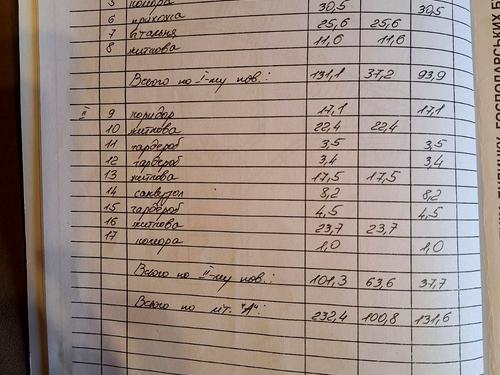 5 комора 30,5 30,5
6 прихожа
7 їдальня 25,6 25,6
8 житлова 11,6 11,6
Всього по I-му пов.: 131,1 37,2 93,9
II 9 коридор 17,1 17,1
10 житлова 22,4 22,4
11 гардероб 3,5 3,5
12 гардероб 3,4 3,4
13 житлова 17,5 17,5
14 санвузол 8,2 8,2
15 гардероб 4,5 4,5
16 житлова 23,7 23,7
17 комора 1,0 1,0
Всього по II-му пов.: 101,3 63,6 37,7
Всього по літ. "А": 232,4 100,8 131,6